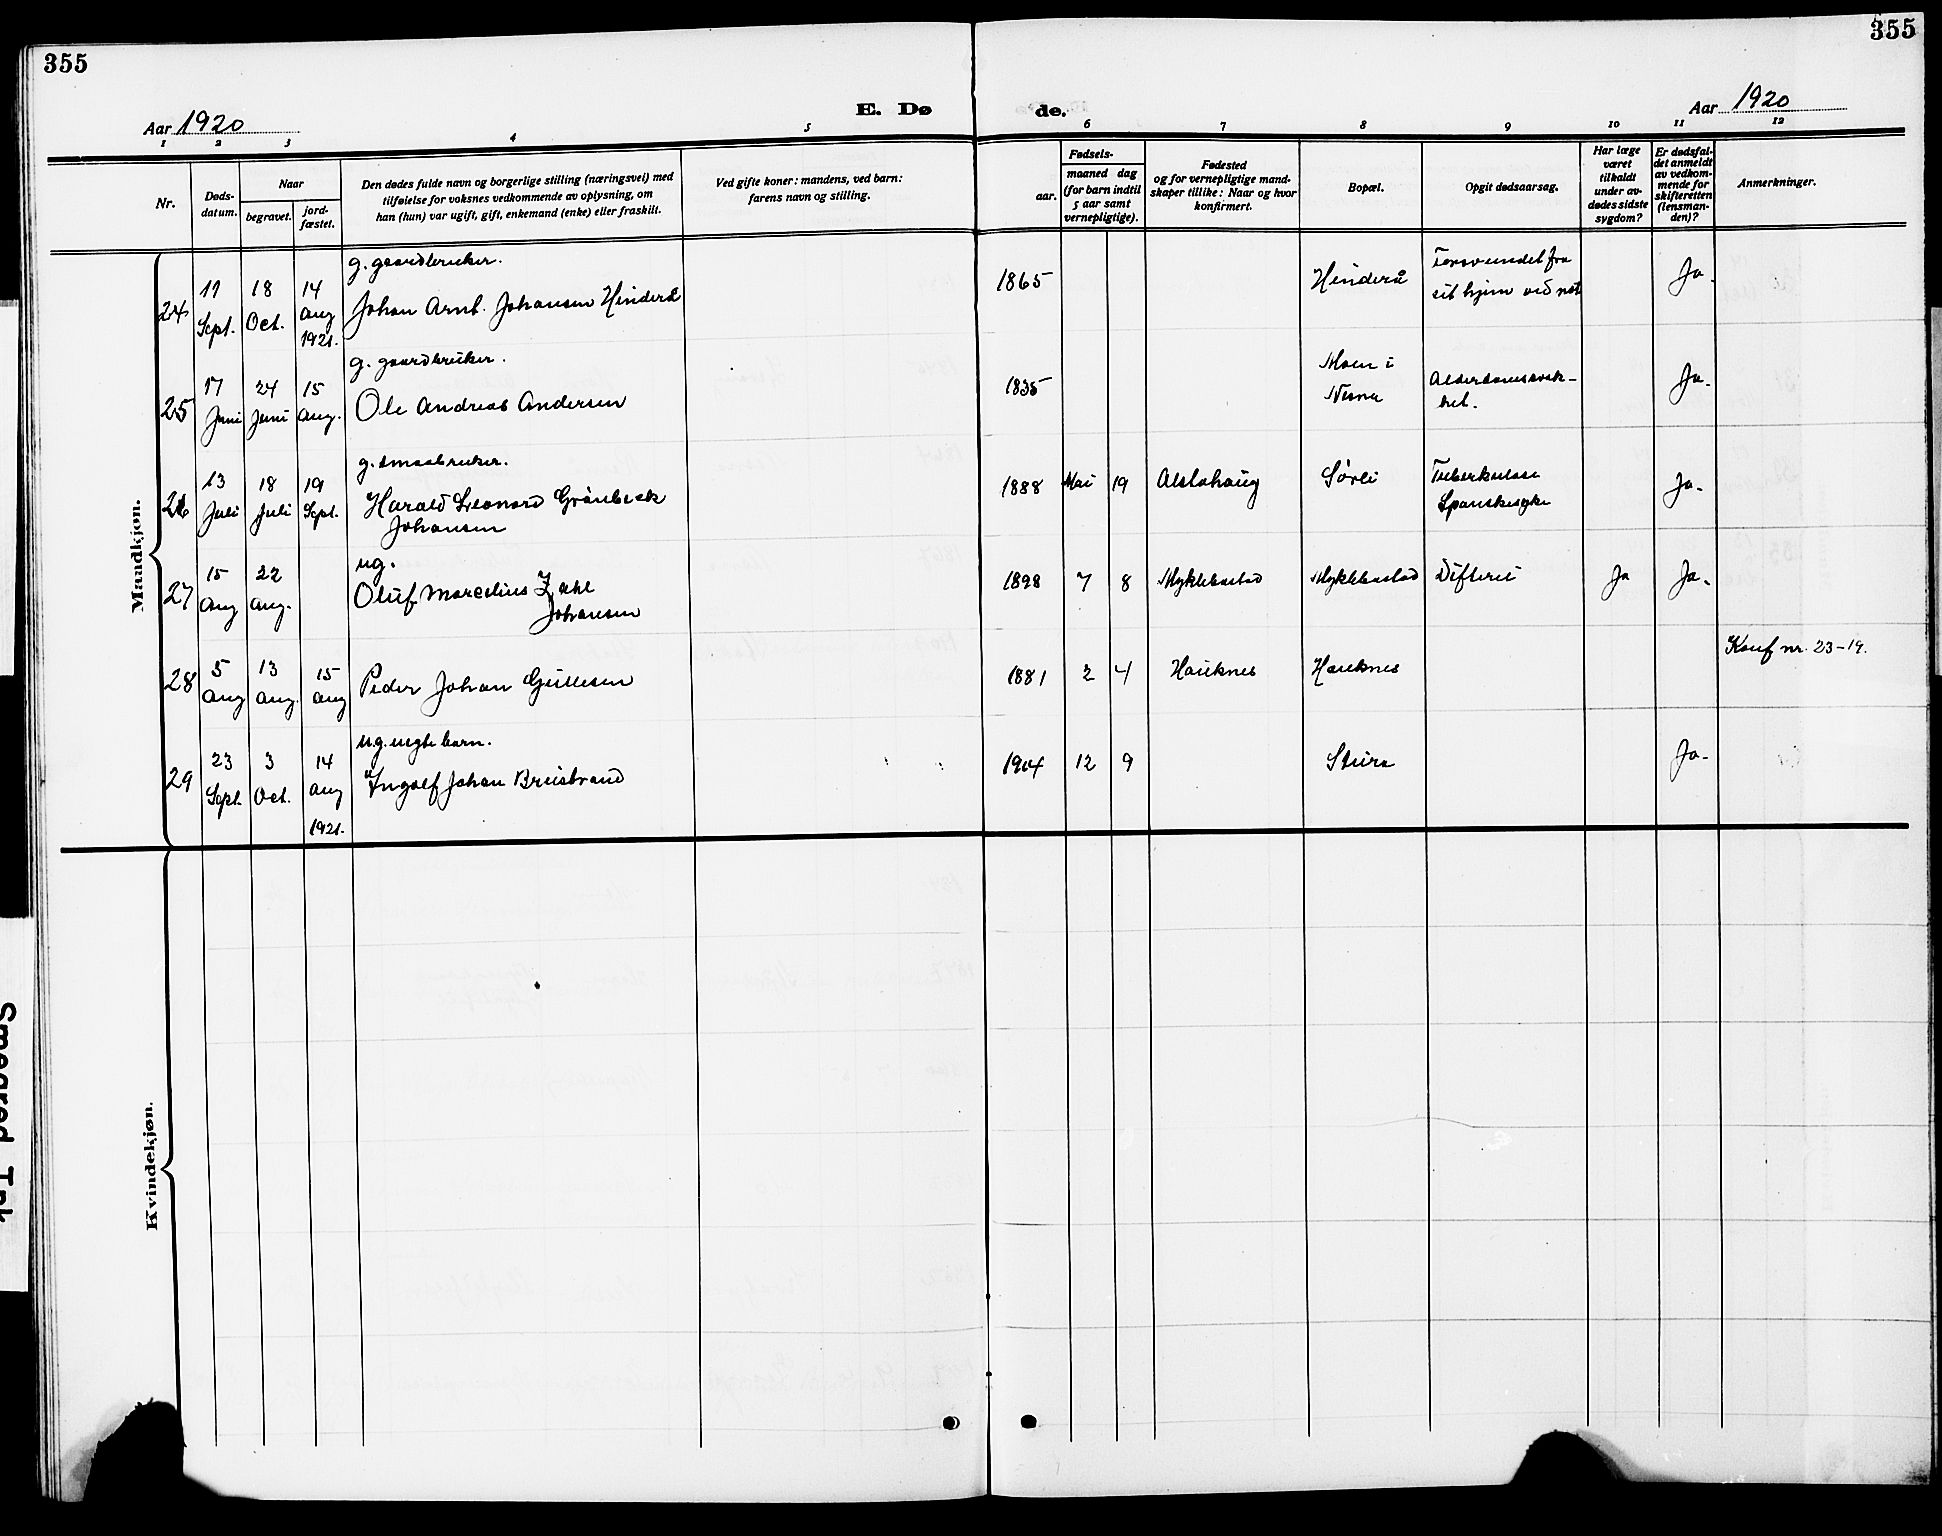 355
355
Aar 1920
E. Dø
de.
Aar 1920
1 2 3 4 5 6 7 8 9 10 11 12
Nr.
Døds-
datum.
Naar
begravet.
jord-
fæstet.
Den dødes fulde navn og borgerlige stilling (næringsvei) med
tilføielse for voksnes vedkommende av oplysning, om
han (hun) var ugift, gift, enkemand (enke) eller fraskilt.
Ved gifte koner: mandens, ved barn:
farens navn og stilling.
Fødsels-
aar.
maaned dag
(for barn indtil
5 aar samt
vernepligtige).
Fødested
og for vernepligtige mand-
skaper tillike: Naar og hvor
konfirmert.
Bopæl.
Opgit dødsaarsag.
Har læge
været
tilkaldt
under av-
dødes sidste
sygdom?
Er dødsfal-
det anmeldt
av vedkom-
mende for
skifteretten
(lensman-
den)?
Anmerkninger.
Mandkjøn.
24
11
Sept.
18
Oct.
14
Aug
1921.
g. gaardbruker.
Johan Arnt. Johansen Hinderå
1865
Hinderå
Forsvundet fra
sit hjem ved nat
Ja.
25
17
Juni
24
Juni
15
Aug.
g. gaardbruker.
Ole Andreas Andersen
1835
Moen i
Nesna
Alderdomssvak-
het.
Ja.
26
13
Juli
18
Juli
19
Sept.
g. smaabruker.
Harald Leonard Grønbeck
Johansen
1888 Mai 19 Alstahaug Sørli
Tuberkulose
Spanskesyke
Ja.
27
15
Aug
22
Aug.
ug.
Oluf Marcelius Zahl
Johansen
1898 7 8 Myklebostad Myklebostad Difteri Ja Ja.
28
5
Aug
13
Aug.
15
Aug
Peder Johan Gullesen
1881 2 4 Hauknes Hauknes
Konf nr. 23-19.
29
23
Sept.
3
Oct.
14
Aug
1921.
ug. uegte barn.
Ingolf Johan Breistrand
1904 12 9 Stura Ja.
Kvindekjøn.